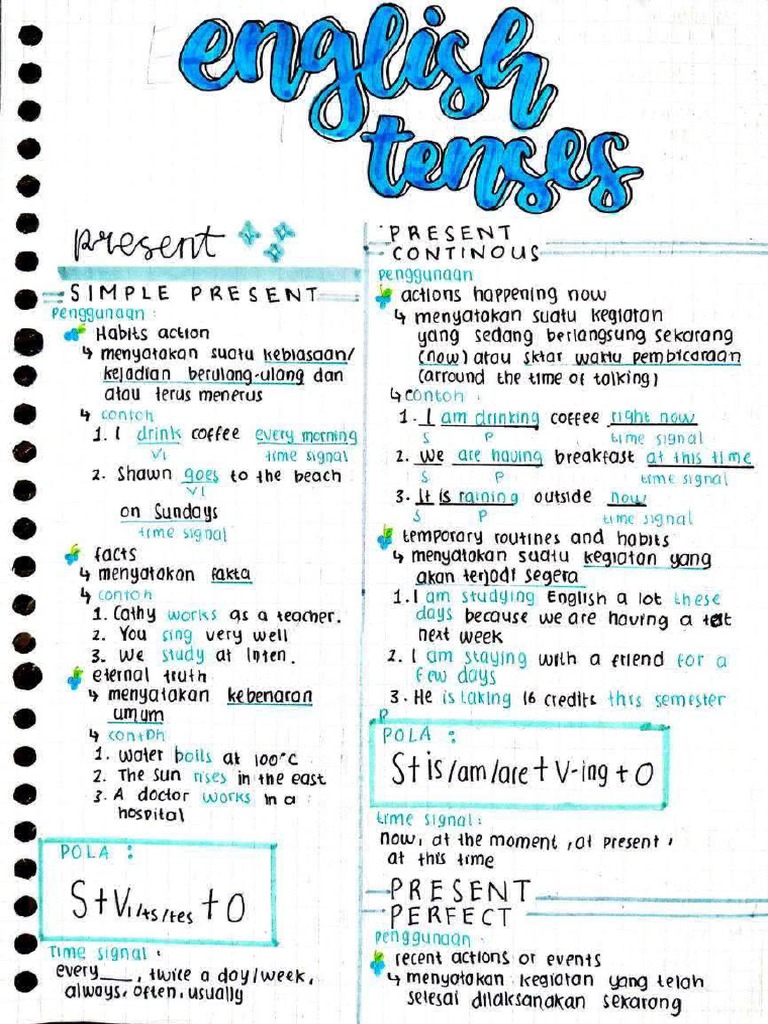 english
tenses
present
SIMPLE PRESENT
Penggunaan:
Habits action
↳ menyatakan suatu kebiasaan/
kejadian berulang-ulang dan
atau terus menerus
↳ contoh
1. I drink coffee every morning
V1 time signal
2. Shawn goes to the beach
V1
on Sundays
time signal
facts
↳ menyatakan fakta
↳ contoh
1. Cathy works as a teacher.
2. You sing very well
3. We study at Inten.
eternal truth
↳ menyatakan kebenaran
umum
↳ contoh
1. water boils at 100°C
2. The sun rises in the east
3. A doctor works in a
hospital
POLA :
S+V1/+s/+es + O
Time signal :
every___, twice a day/week,
always, often, usually
PRESENT
CONTINOUS
penggunaan
actions happening now
↳ menyatakan suatu kegiatan
yang sedang berlangsung sekarang
(now) atau sktar waktu pembicaraan
(arround the time of talking)
↳ contoh :
1. I am drinking coffee right now
S P time signal
2. We are having breakfast at this time
S P time signal
3. It is raining outside now
S P time signal
temporary routines and habits
↳ menyatakan suatu kegiatan yang
akan terjadi segera
1. I am studying English a lot these
days because we are having a test
next week
2. I am staying with a friend for a
few days
3. He is taking 16 credits this semester
P
POLA :
S+is/am/are+V-ing+O
time signal:
now, at the moment, at present,
at this time
PRESENT
PERFECT
penggunaan
recent actions or events
↳ menyatakan kegiatan yang telah
selesai dilaksanakan sekarang